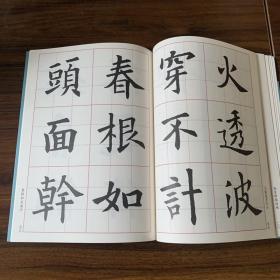 火透波
穿不計
春根如
頭面幹